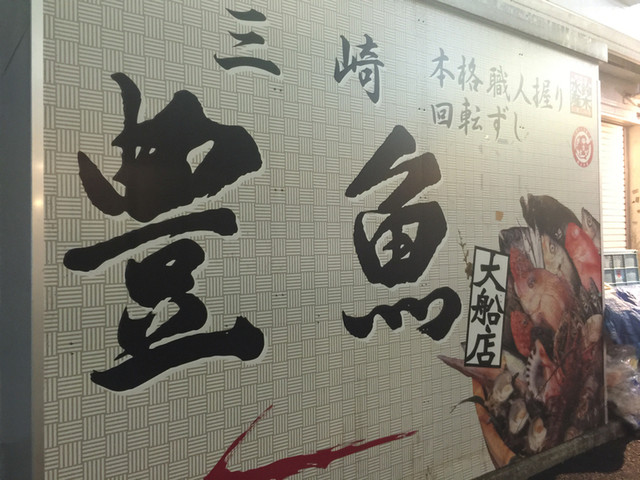 三崎
豊魚
本格職人握り
回転ずし
大船店